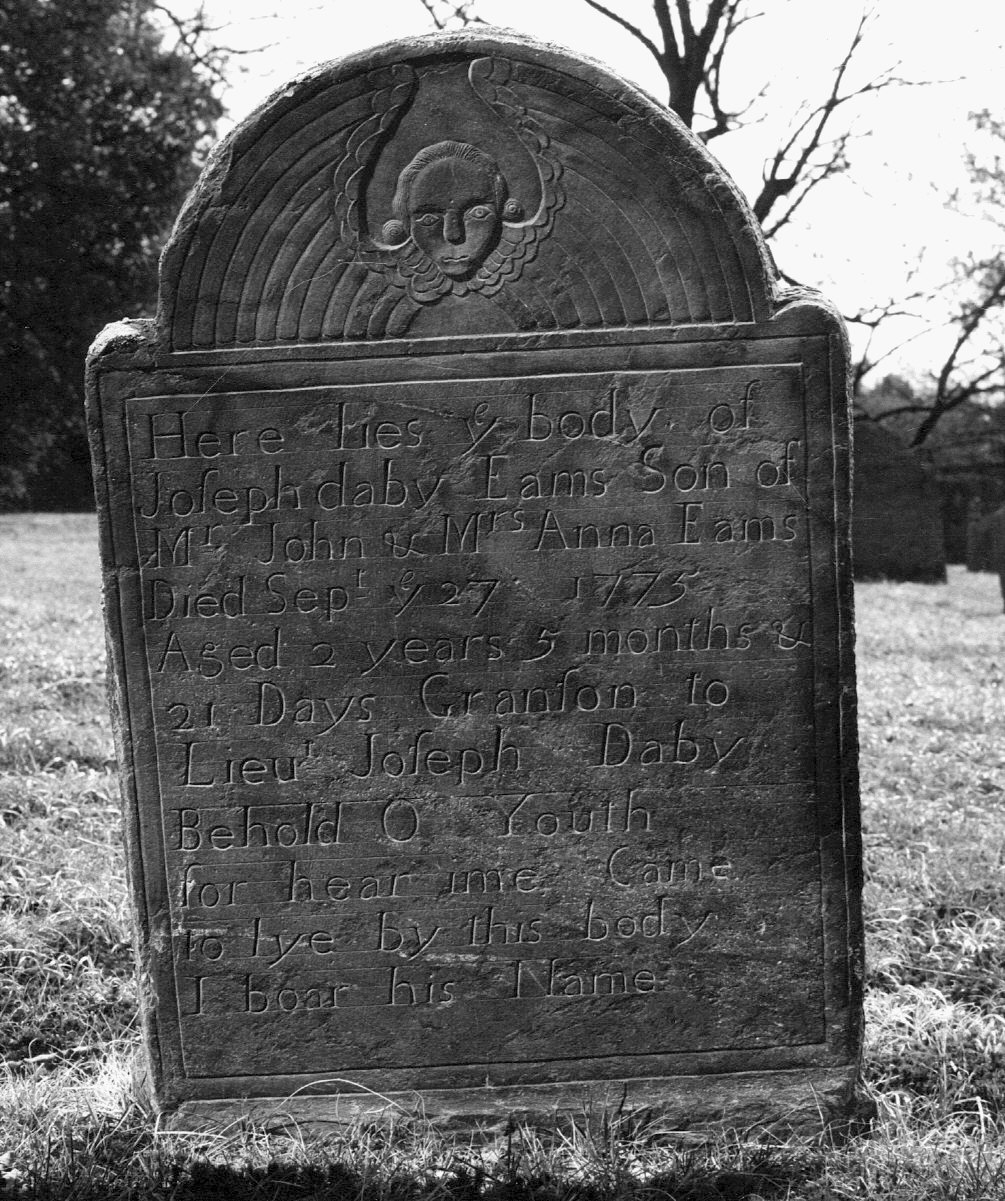 Here lies yͤ body of
Joſeph daby Eams Son of
Mʳ John & Mʳˢ Anna Eams
Died Sepᵗ yͤ 27 1775
Aged 2 years 5 months &
21 Days Granſon to
Lieuᵗ Joſeph Daby
Behold O Youth
for hear ime Came
to lye by this body
I boar his Name